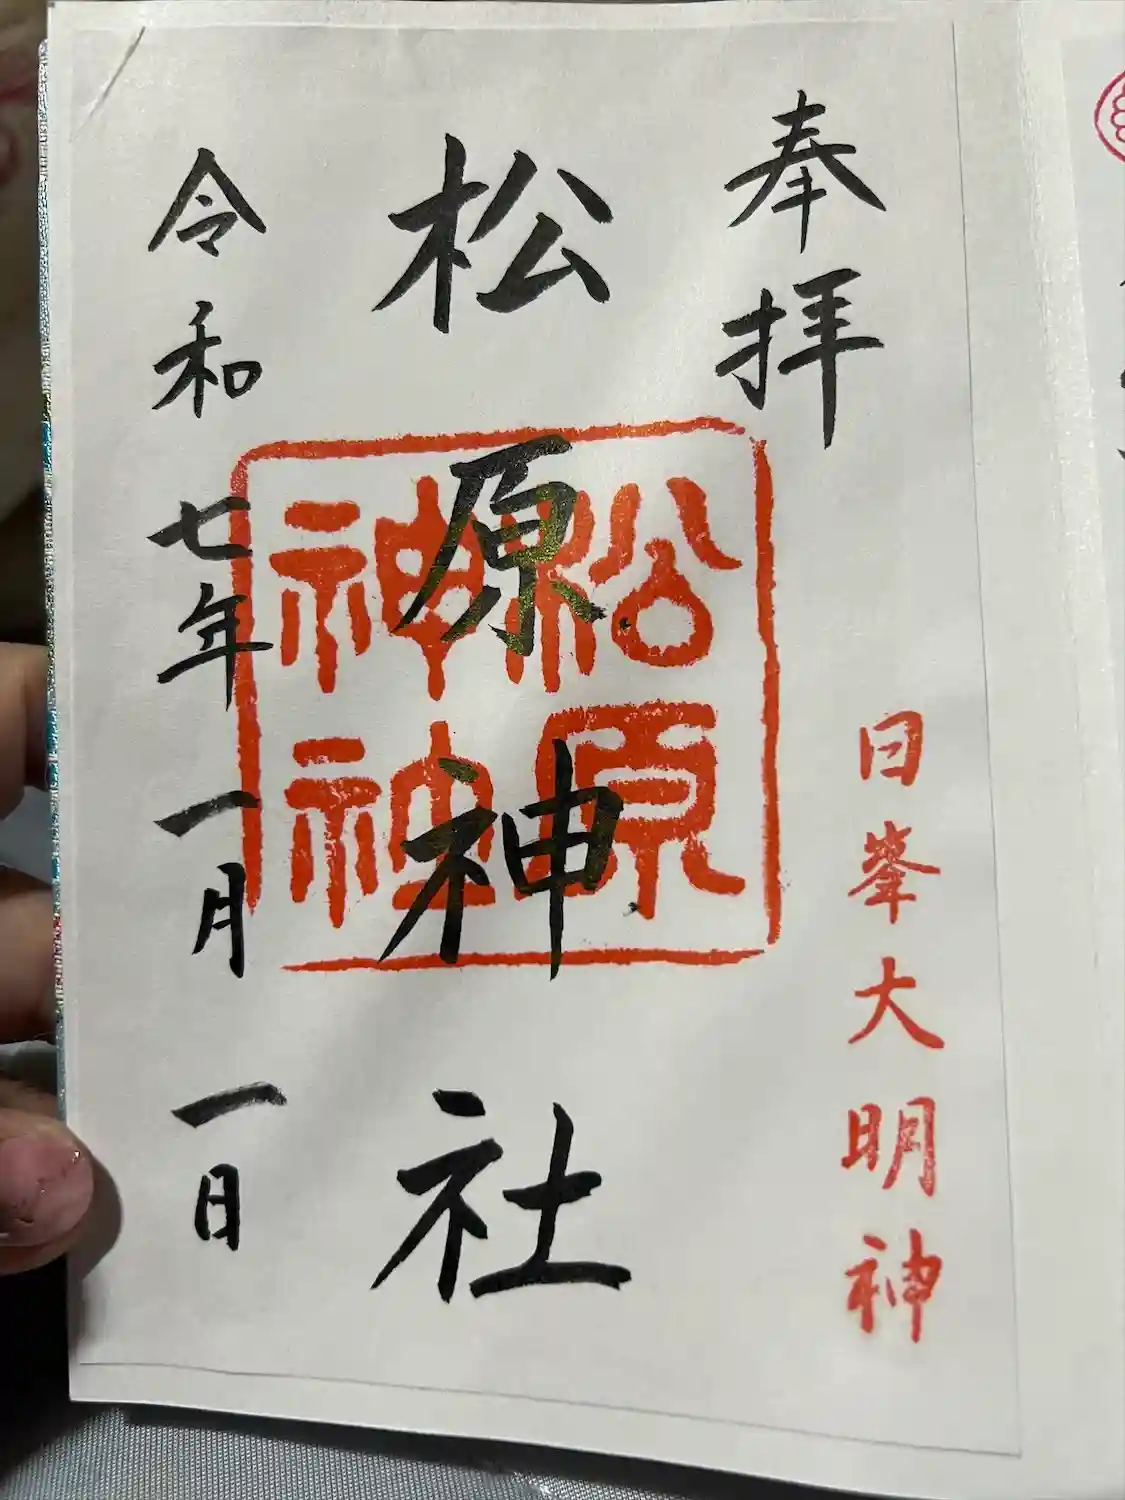 奉拝
日峯大明神
松原神社
松原
神社
令和七年一月一日